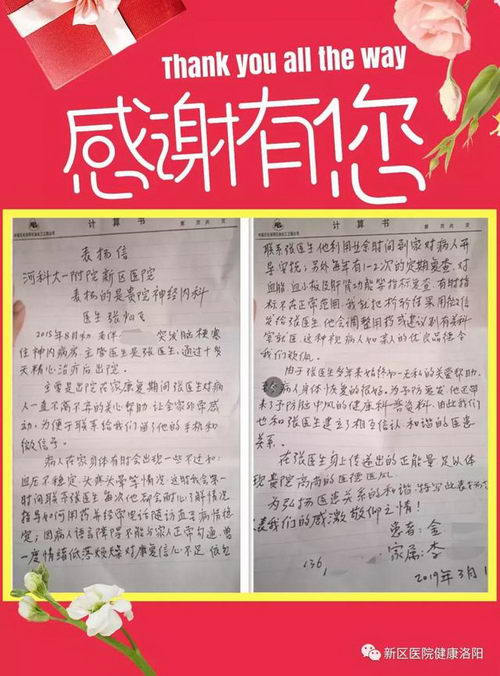 Thank you all the way
感谢有您
计算书
表扬信
河科大一附院新区医院
表扬的是贵院神经内科
医生张灿飞
2015年8月初 老伴 突发脑梗塞
住神内病房，主管医生是张医生，通过十多
天精心治疗后出院。
主要是出院在家康复期间张医生对病
人一直不离不弃的关心帮助，让全家非常感
动，为便于联系给我们留了他的手机和
微信号。
病人在家身体有时会出现一些不过如：
血压不稳定、头疼头晕等情况，这时我会第一
时间联系张医生，每次他都会耐心了解情况
指导如何用药并经常电话随访直至病情稳
定；因病人语言障碍不能与家人正常沟通，曾
一度情绪低落烦燥对康复信心不足，
计算书
联系张医生他利用业余时间到家对病人开
导安抚；另外每年有1-2次的定期复查，对
血脂、血小板肝肾功能等指标复查，有时指
标不在正常范围，我就把检验结果用微信
发给张医生，他会调整用药或建议到有关科
室就医，这种视病人如亲人的优良品德令
我们敬佩。
由于张医生多年来始终如一无私的关爱帮助，
病人身体恢复的很好。为予防复发他还带
来了予防脑中风的健康科普资料。由此我们
也和张医生建立了相互信认、和谐的医患
关系。
在张医生身上传递出的正能量足以体
现贵院高尚的医德医风。
为弘扬医患关系的和谐，特写此表扬信
表我们的感激敬仰之情！
患者：金
家属：李
136
2019年3月1
新区医院健康洛阳